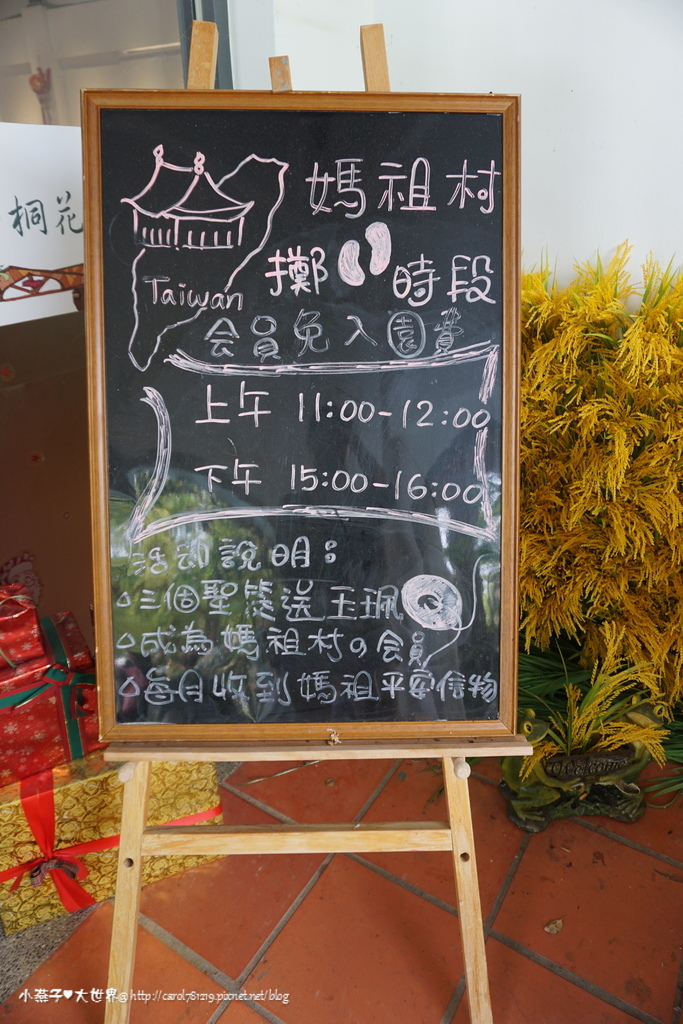 桐花
媽祖村
擲 時段
Taiwan
会員免入園費
上午 11:00-12:00
下午 15:00-16:00
活动說明：
△三個聖筊送玉珮
△成為媽祖村の会員
△每月收到媽祖平安信物
Welcome
小燕子♥大世界@http://carol761219.pixnet.net/blog